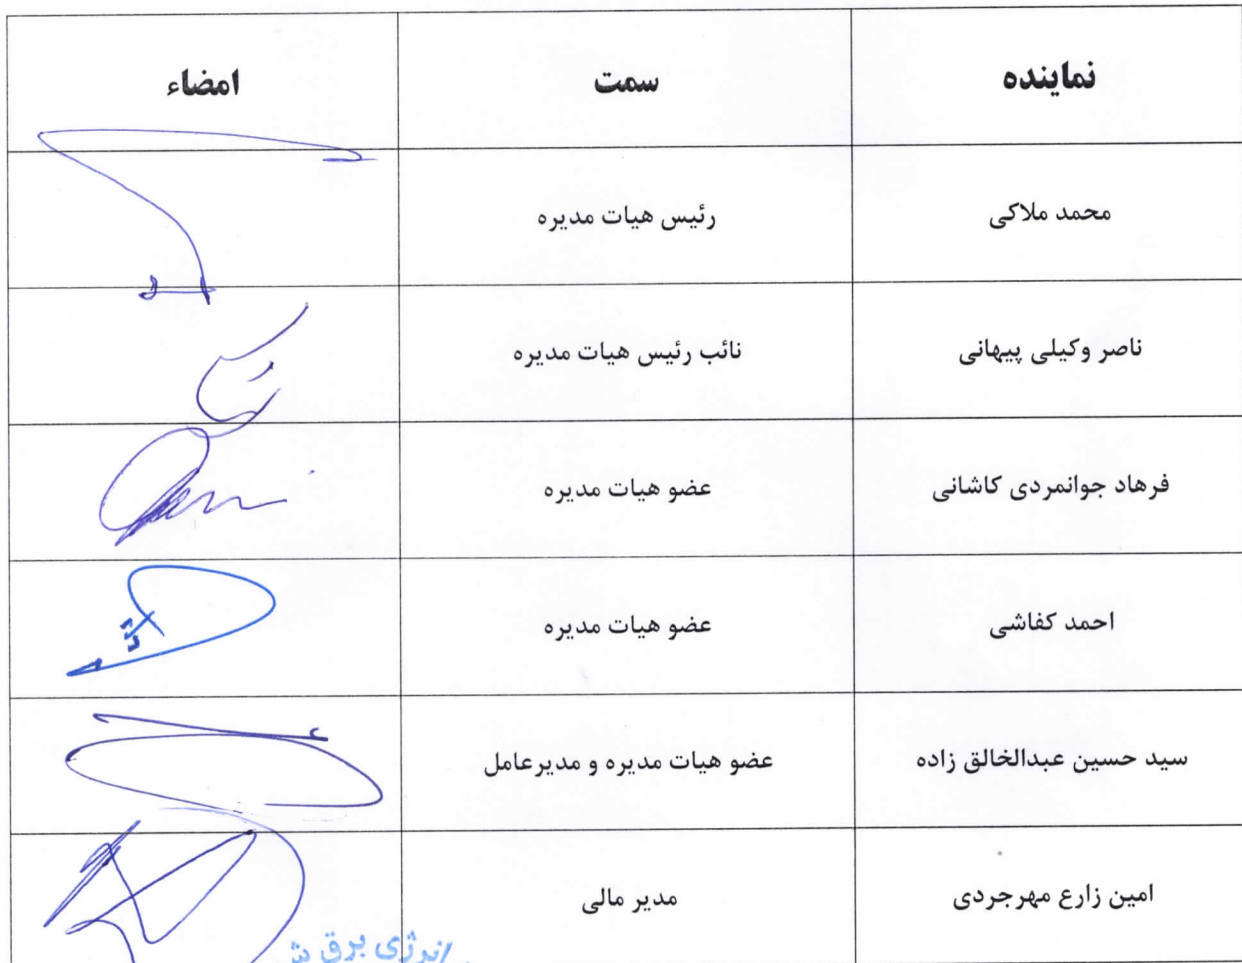 نماینده سمت امضاء
محمد ملاکی رئیس هیات مدیره
ناصر وکیلی پیهانی نائب رئیس هیات مدیره
فرهاد جوانمردی کاشانی عضو هیات مدیره
احمد کفاشی عضو هیات مدیره
سید حسین عبدالخالق زاده عضو هیات مدیره و مدیرعامل
امین زارع مهرجردی مدیر مالی
انرژی برق